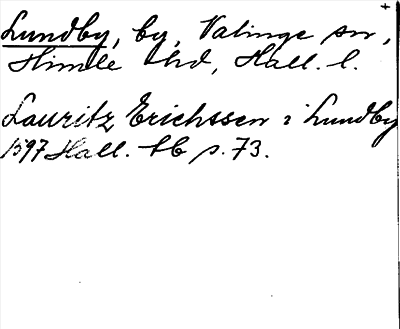 Lundby, by, Valinge sn,
Himle hd, Hall. l.
Lauritz Erichssen i Lundby
1597 Hall. tb s. 73.